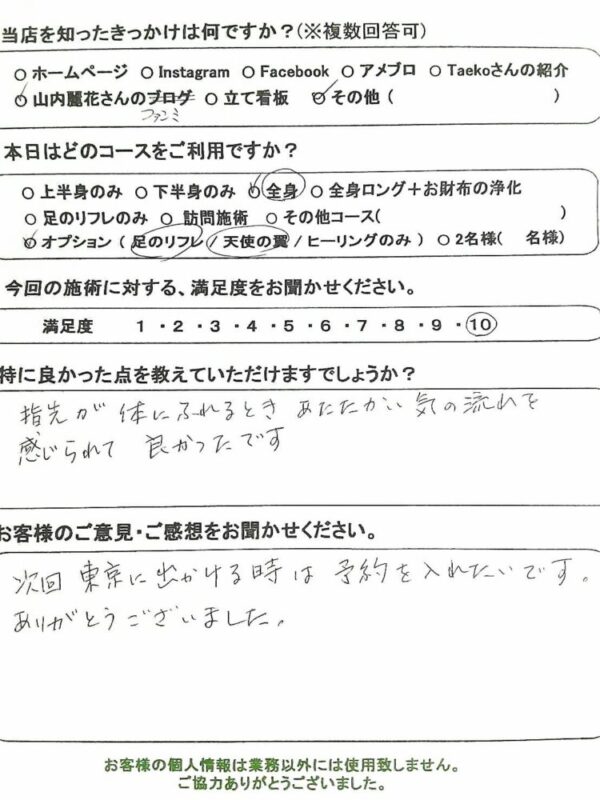 当店を知ったきっかけは何ですか？(※複数回答可)
○ ホームページ ○ Instagram ○ Facebook ○ アメブロ ○ Taekoさんの紹介
○ 山内麗花さんのブログ ○ 立て看板 ○ その他 ( )
ファンミ
本日はどのコースをご利用ですか？
○ 上半身のみ ○ 下半身のみ ○ 全身 ○ 全身ロング＋お財布の浄化
○ 足のリフレのみ ○ 訪問施術 ○ その他コース( )
○ オプション ( 足のリフレ / 天使の翼 / ヒーリングのみ ) ○ 2名様( 名様)
今回の施術に対する、満足度をお聞かせください。
満足度 1 ・ 2 ・ 3 ・ 4 ・ 5 ・ 6 ・ 7 ・ 8 ・ 9 ・ 10
特に良かった点を教えていただけますでしょうか？
指先が 体にふれるとき あたたかい 気の流れを
感じられて 良かったです
お客様のご意見・ご感想をお聞かせください。
次回 東京に出かける時は 予約を入れたいです。
ありがとうございました。
お客様の個人情報は業務以外には使用致しません。
ご協力ありがとうございました。